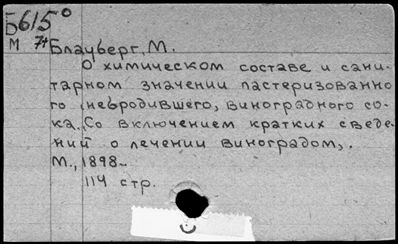 Б615°
М 74
Блауберг, М.
О химическом составе и сани-
тарном значении пастеризованно
го, невродившего, виноградного со-
ка. Со включением кратких сведе-
ний о лечении виноградом,.
М., 1898.
114 стр.